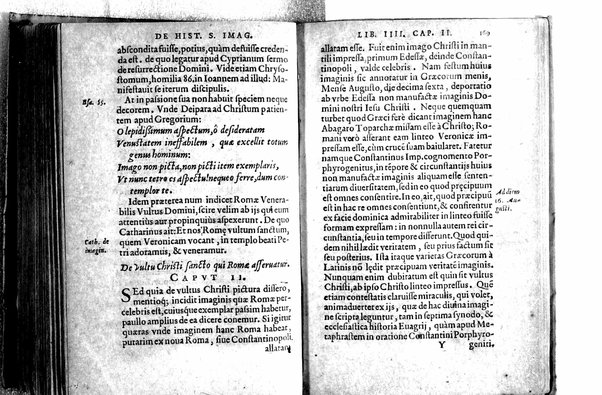 DE HIST. S. IMAG.
abscondita fuisse, potius, quàm defuisse creden-
da est. de quo legatur apud Cyprianum sermo
de resurrectione Domini. Vide etiam Chryso-
stomum, homilia 86, in Ioannem ad illud: Ma-
nifestauit se iterum discipulis.
Esa. 53.
At in passione sua non habuit speciem neque
decorem. Vnde Deipara ad Christum patien-
tem apud Gregorium:
O lepidissimum aspectum, ô desideratam
Venustatem ineffabilem, quæ excellit totum
genus hominum:
Imago non picta, non picti item exemplaris,
Vt nunc tetro es aspectu! nequeo ferre, dum con-
templor te.
Idem præterea num indicet Romæ Venera-
bilis Vultus Domini, scire velim ab ijs qui eum
attentiùs aut propinquiùs aspexerunt. De quo
Catharinus ait: Et nos Romę vultum sanctum,
Cath. de
imagin.
quem Veronicam vocant, in templo beati Pe-
tri adoramus, & veneramur.
De Vultu Christi sancto qui Romæ asseruatur.
CAPVT II.
SEd quia de vultus Christi pictura dissero,
mentioq; incidit imaginis quæ Romæ per-
celebris est, cuiusque exemplar passim habetur,
paullo ampliùs de ea dicere conemur. Si igitur
quæras vnde imaginem hanc Roma habeat,
putarim ex noua Roma, siue Constantinopoli
allatam
LIB. IIII. CAP. II. 169
allatam esse. Fuit enim imago Christi in man-
tili impressa, primum Edessa, deinde Constan-
tinopoli, valde celebris. Nam festum huius
imaginis sic annotatur in Græcorum menis,
Mense Augusto, dię decima sexta, deportatio
ab vrbe Edessa non manufactæ imaginis Do-
mini nostri Iesu Christi. Neque quemquam
turbet quod Græci ferè dicant imaginem hanc
Abagaro Toparchæ missam esse à Christo; Ro-
mani verò asserant eam linteo Veronicæ im-
pressam esse, cùm crucē suam baiularet. Fatetur
namque Constantinus Imp. cognomento Por-
phyrogenitus, in tēpore & circunstantijs huius
non manufactæ imaginis aliquam esse senten-
tiarum diuersitatem, sed in eo quod pręcipuum
est omnes consentire. In eo, ait, quod præcipuū
est in hac re omnes consentiunt, & confitentur
Ad diem
16. Au-
gusti.
ex facie dominica admirabiliter in linteo fuisse
formam expressam: in nonnulla autem rei cir-
cunstantia, seu in tempore differunt. Quod qui-
dem nihil lædit veritatem, seu prius factum sit
seu posterius. Ista itaque varietas Græcorum à
Latinis nō lędit præcipuam veritatē imaginis.
Nunquam enim dubiratum est quin sit vultus
Christi, ab ipso Christo linteo impressus. Quē
etiam contestatis claruisse miraculis, qui volet,
animaduertet ex ijs, quæ de hac diuina imagi-
ne scripta leguntur, tam in septima synodo, &
ecclesiastica historia Euagrij, quàm apud Me-
taphrastem in oratione Constantini Porphyro-
Y geniti.